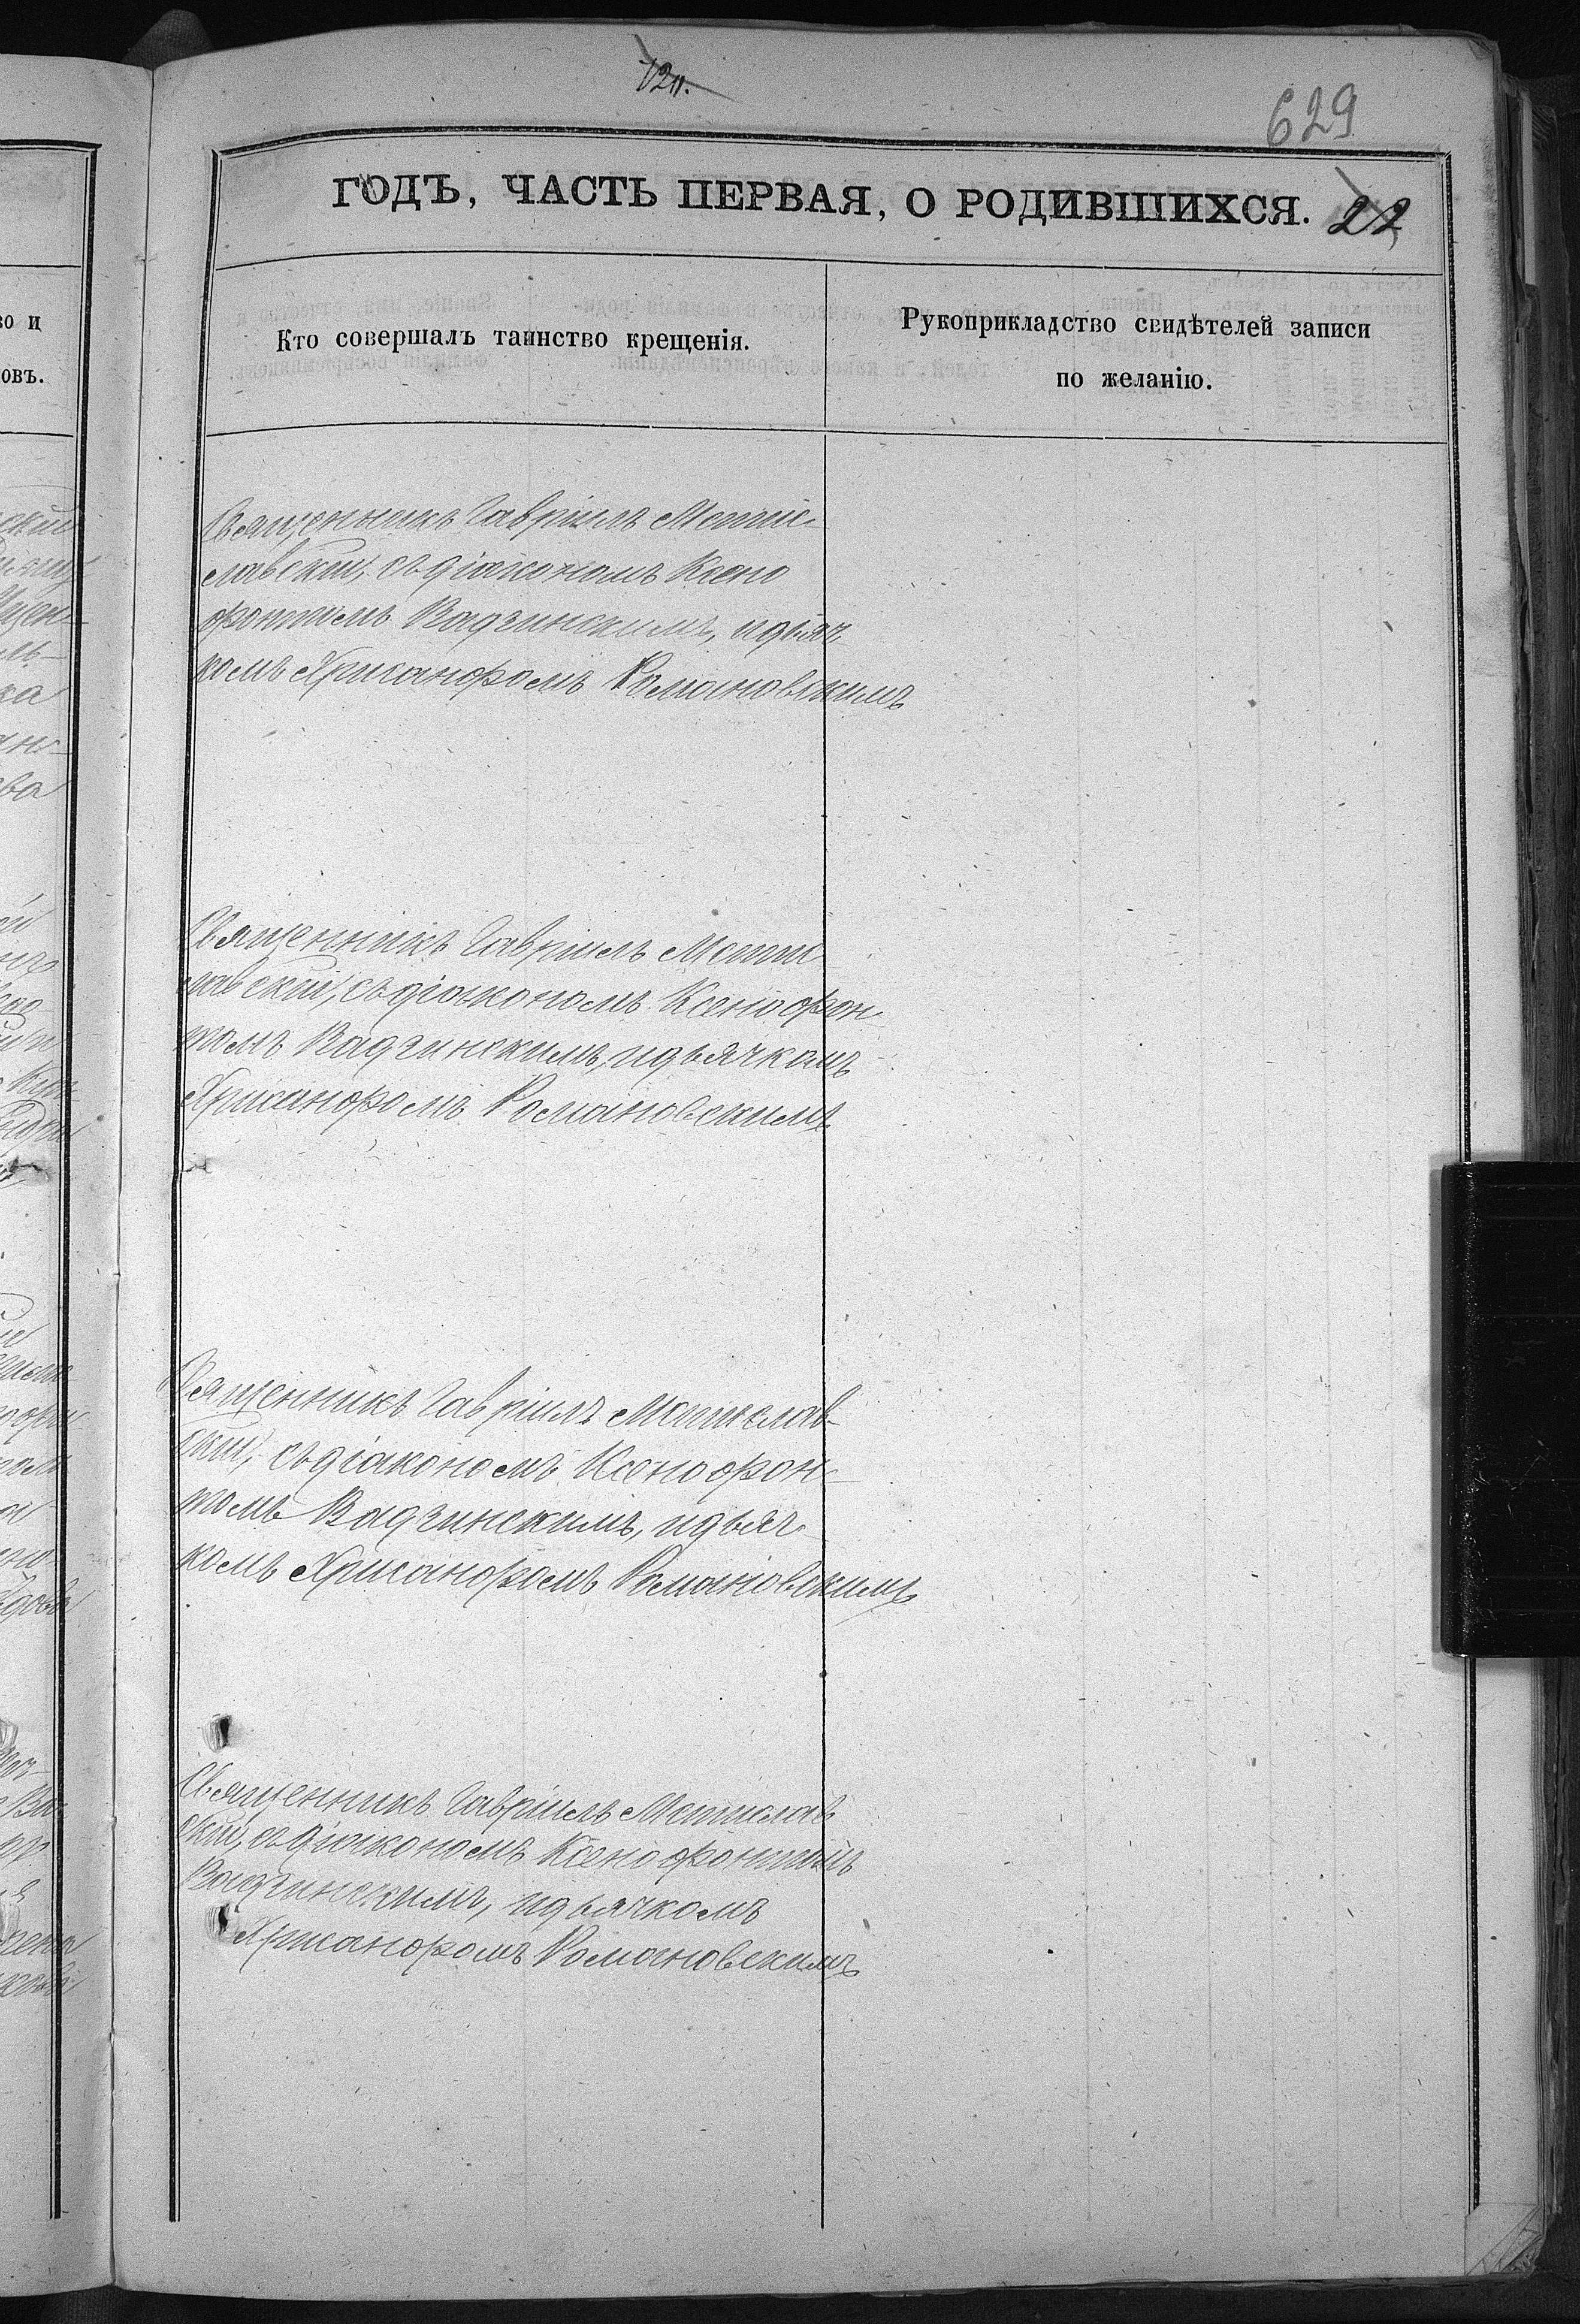 12
629
ГОДЪ, ЧАСТЬ ПЕРВАЯ, О РОДИВШИХСЯ. 22
Кто совершалъ таинство крещенія.
Рукоприкладство свидѣтелей записи
по желанію.
Священникъ Гавріилъ Мстис-
лавскій, съ діакономъ Ксено
фонтомъ Вадзинскимъ, и дьяч-
комъ Хрисанфомъ Романовскимъ
Священникъ Гавріилъ Мсти
лавскій, съ діакономъ Ксенофон
томъ Вадзинскимъ, и дьячкомъ
Хрисанфомъ Романовскимъ
Священникъ Гавріилъ Мстислав-
скій, съ діакономъ Ксенофон-
томъ Вадзинскимъ, и дьяч-
комъ Хрисанфомъ Романовскимъ
Священникъ Гавріилъ Мстислав
скій, съ діакономъ Ксенофонтомъ
Вадзинскимъ, и дьячкомъ
Хрисанфомъ Романовскимъ